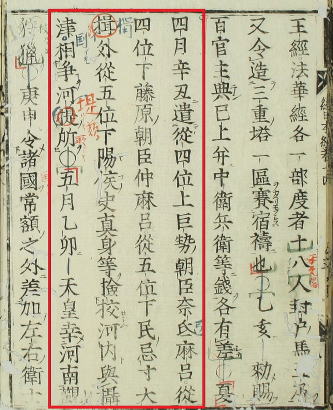 王經法華經各一部度者十八人封戶馬五疋
又令造三重塔一區賽宿禱也乙亥勅賜
百官主典已上并中衛兵衛等錢各有差夏
四月辛丑遣從四位上巨勢朝臣奈氐麻呂從
四位下藤原朝臣仲麻呂從五位下民忌寸大
揖外從五位下陽侯史真身等撿挍河内與攝
津相爭河所五月乙卯天皇幸河南觀
獵庚申令諸國常額之外差加左右衛士